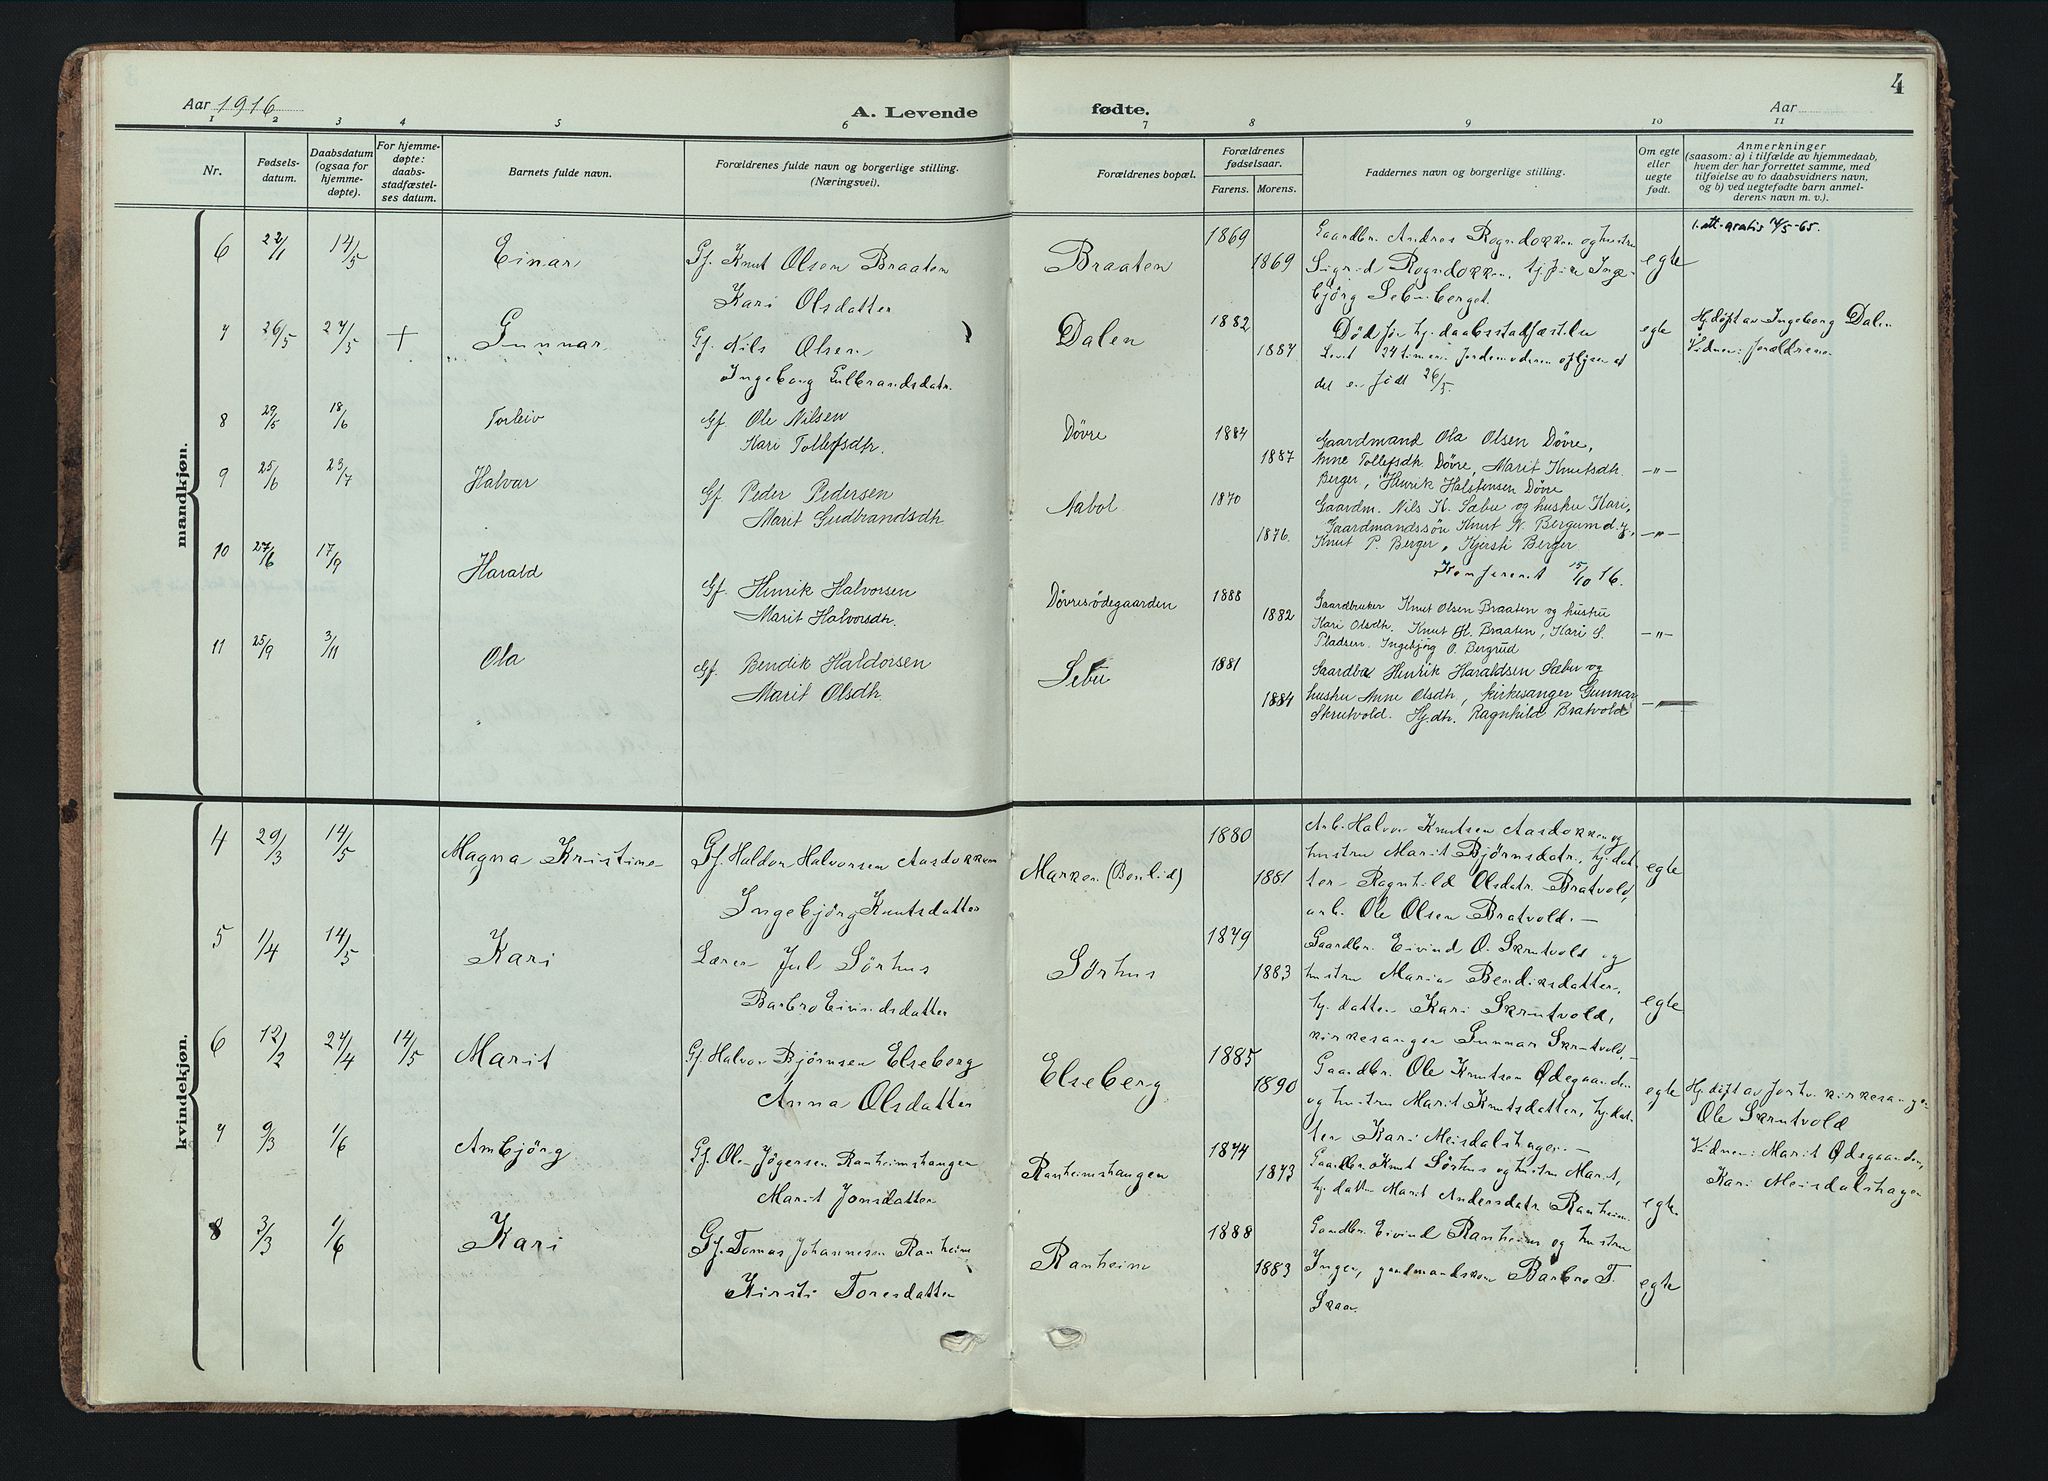 Aar 1916
A. Levende
fødte.
Aar
4
1 2 3 4 5 6 7 8 9 10 11
Nr.
Fødsels-
datum.
Daabsdatum
(ogsaa for
hjemme-
døpte).
For hjemme-
døpte:
daabs-
stadfæstel-
ses datum.
Barnets fulde navn.
Forældrenes fulde navn og borgerlige stilling.
(Næringsvei).
Forældrenes bopæl.
Forældrenes
fødselsaar.
Farens. Morens.
Faddernes navn og borgerlige stilling.
Om egte
eller
uegte
født.
Anmerkninger
(saasom: a) i tilfælde av hjemmedaab,
hvem der har forrettet samme, med
tilføielse av to daabsvidners navn,
og b) ved uegtefødte barn anmel-
derens navn m. v.).
mandkjøn.
6 22/1 14/5 Einar
Gf. Knut Olsen Braaten
Kari Olsdatter
Braaten
1869
1869
Gaardbr. Andres Rogndokken og hustru
Sigrid Rogndokken, Inge-
björg Sebuberget.
egte
1. att. gratis 14/5-65.
7 26/5 27/5 + Gunnar
Gf. Nils Olsen
Ingeborg Gulbrandsdatr.
Dalen
1882
1887
Död før hj. daabsstadfæstelse
Levet 24 timer. Jordemoderen oplyser at
det er født 26/5.
egte
Hj.døpt av Ingeborg Dalen
Vidner: forældrene
8 29/5 18/6 Torleiv
Gf. Ole Nilsen
Kari Tollefsdtr.
Døvre
1884
1887
Gaardmand Ola Olsen Døvre,
Anne Tollefsdtr. Døvre, Marit Knutsdtr.
Berger, Henrik Halstensen Døvre
-"-
9 25/6 23/7 Halvar
Gf. Peder Pedersen
Marit Gudbrandsdtr.
Aabol
1870
1876.
Gaardm. Nils K. Sæbu og hustru Kari,
Gaardmandssøn Knut N. Bergum d.y.,
Knut P. Berger, Kjersti Berger
-"-
Konfereret 15/10 16.
10 27/6 17/9 Harald
Gf. Henrik Halvorsen
Marit Halvorsdtr.
Døvresødegaarden
1888
1882
Gaardbruker Knut Olsen Braaten og hustru
Kari Olsdtr. Knut K. Braaten, Kari S.
Pladsen. Ingebjörg O. Bergrud
-"-
11 25/9 3/11 Ola
Gf. Bendik Haldorsen
Marit Olsdtr.
Sebu
1881
1884
Gaardbr. Henrik Haraldsen Sæbu og
hustru Anne Olsdtr, kirkesanger Gunnar
Skrutvold. Hj.dtr. Ragnhild Bratvold
-"-
kvindekjøn.
4 29/3 14/5 Magna Kristine
Gf. Haldor Halvorsen Aasdokken
Ingebjörg Knutsdatter
Marken (Benlid)
1880
1881
Arb. Halvor Knutsen Aasdokken og
hustru Marit Bjørnsdatr., hj.dat-
ter Ragnhild Olsdatr. Bratvold,
arb. Ole Olsen Bratvold. -
egte
5 1/4 14/5 Kari
Lærer Jul Sørhus
Barbro Eivindsdatter
Sørhus
1879
1883
Gaardbr. Eivind O. Skrutvold og
hustru Maria Bendiksdatter,
hj. datter Kari Skrutvold,
kirkesanger Gunnar Skrutvold. -
egte
6 12/2 24/4 14/5 Marit
Gf. Halvor Bjørnsen Elseberg
Anna Olsdatter
Elseberg
1885
1890
Gaardbr. Ole Knutsen Ødegaarden
og hustru Marit Knutsdatter, hj.dat-
ter Kari Meisdalshagen. -
egte
Hj.døpt av forhv. kirkesanger
Ole Skrutvold
Vidner: Marit Ødegaarden,
Kari Meisdalshagen
7 9/3 1/6 Ambjörg
Gf. Ole Jögersen Ranheimshaugen
Marit Jonsdatter
Ranheimshaugen
1874
1873
Gaardbr. Knut Sörhus og hustru Marit,
hj. datter Marit Andersdatr. Ranheim.
egte.
8 3/3 1/6 Kari
Gf. Tomas Johannesen Ranheim
Kirsti Toresdatter
Ranheim
1888
1883
Gaardbr. Eivind Ranheim og hustru
Inger, Barbro T.
Skaar.
egte